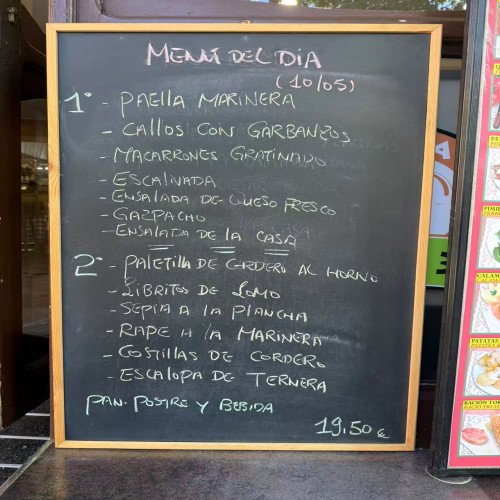 MENÚ DEL DIA
(10/05)
1° - PAELLA MARINERA
- CALLOS CON GARBANZOS
- MACARRONES GRATINADO
- ESCALIVADA
- ENSALADA DE QUESO FRESCO
- GAZPACHO
- ENSALADA DE LA CASA
2° - PALETILLA DE CORDERO AL HORNO
- LIBRITOS DE LOMO
- SEPIA A LA PLANCHA
- RAPE A LA MARINERA
- COSTILLAS DE CORDERO
- ESCALOPA DE TERNERA
PAN. POSTRE Y BEBIDA
19,50 €
CALAMA
PATATAS
RACION TOR